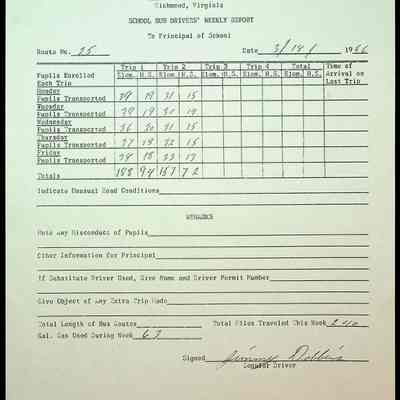 Richmond, Virginia
SCHOOL BUS DRIVERS' WEEKLY REPORT
To Principal of School
Route No. 25 Date 3/14/ 1966
Trip 1 Trip 2 Trip 3 Trip 4 Total Time of
Pupils Enrolled Elem. H.S. Elem. H.S. Elem. H.S. Elem. H.S. Elem. H.S. Arrival on
Each Trip Last Trip
Monday
Pupils Transported 39 19 31 15
Tuesday
Pupils Transported 39 19 30 14
Wednesday
Pupils Transported 36 20 31 15
Thursday
Pupils Transported 37 18 32 15
Friday
Pupils Transported 18 33 13
Totals 188 94 157 72
Indicate Unusual Road Conditions
REMARKS
Note Any Misconduct of Pupils
Other Information for Principal
If Substitute Driver Used, Give Name and Driver Permit Number
Give Object of Any Extra Trip Made
Total Length of Bus Routes Total Miles Traveled This Week 240
Gal. Gas Used During Week 63
Signed Jimmy Dobbins
Regular Driver